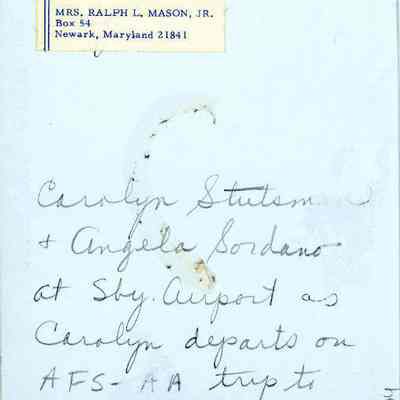 MRS. RALPH L. MASON, JR.
Box 54
Newark, Maryland 21841
Carolyn Stutsman
& Angela Sordano
at Sby. Airport as
Carolyn departs on
AFS-AA trip to